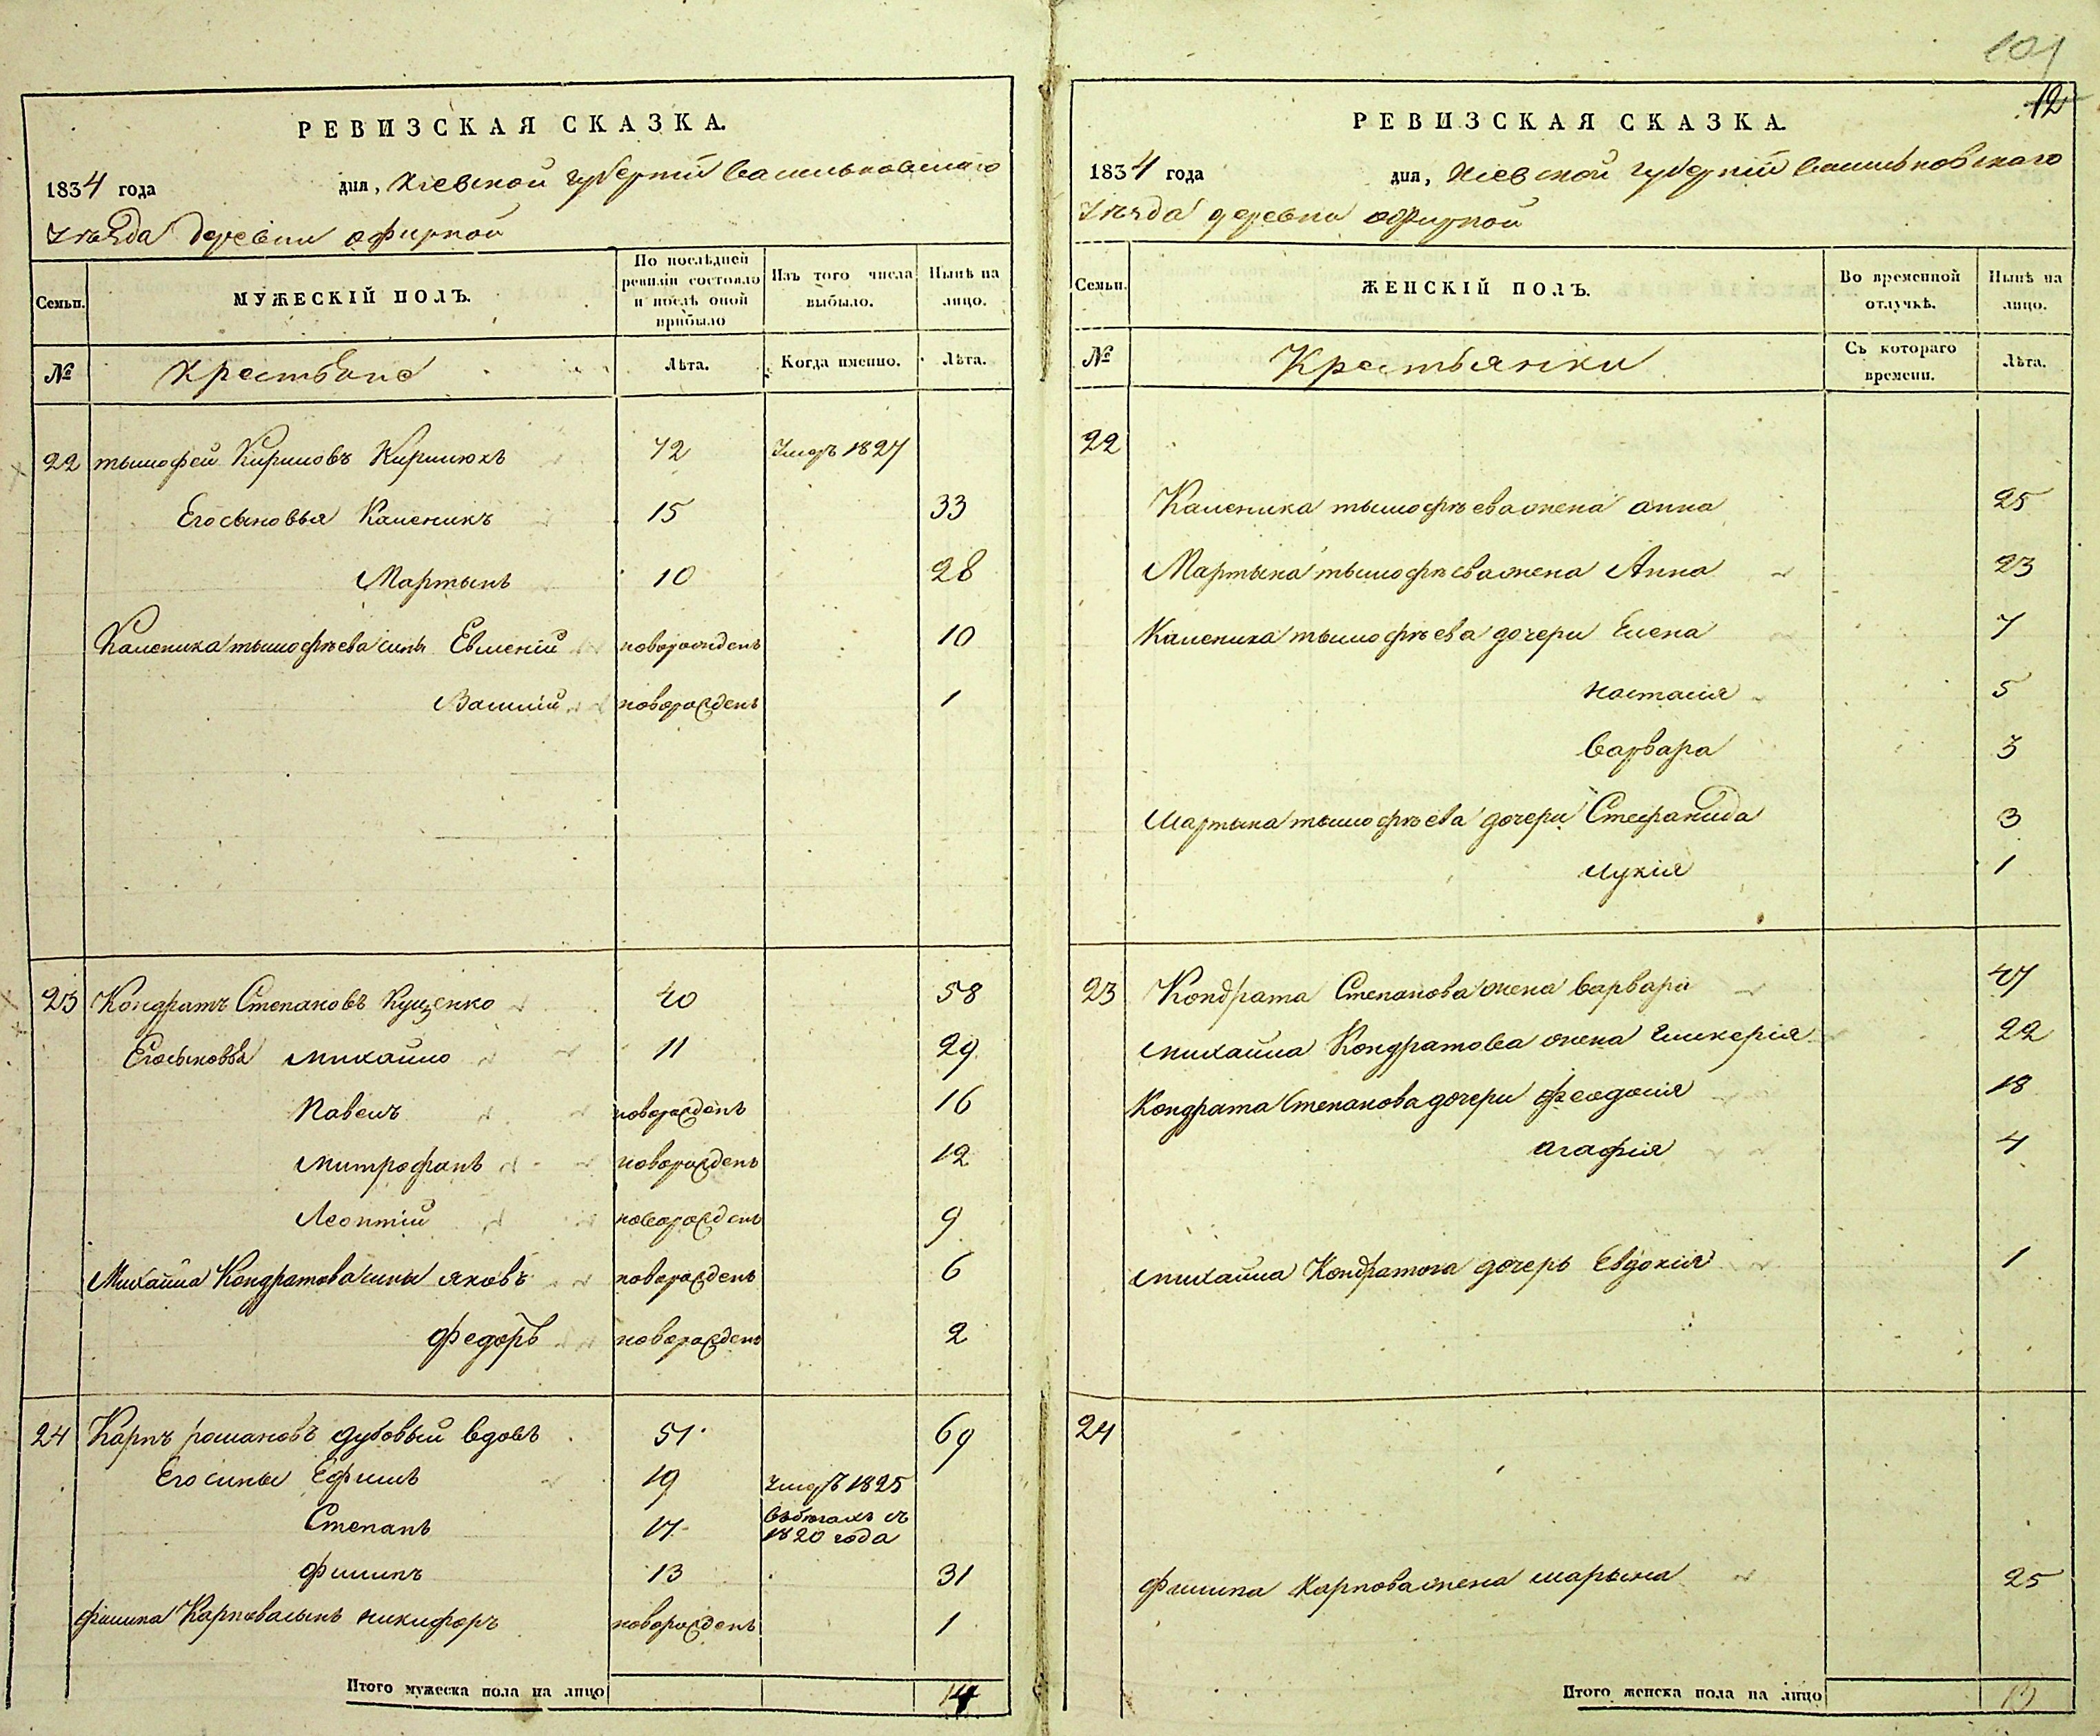 104
12
РЕВИЗСКАЯ СКАЗКА.
1834 года дня, Кіевской губерніи Васильковскаго
Уѣзда деревни офирной
Семьи. МУЖЕСКІЙ ПОЛЪ. По послѣдней ревизіи состояло и послѣ оной прибыло Изъ того числа выбыло. Нынѣ на лицо.
№ Крестьяне Лѣта. Когда именно. Лѣта.
22 тымофей Кириловъ Кирилюкъ 72 Умеръ 1827
Его сыновья Каленикъ 15 33
Мартынъ 10 28
Каленика тымофѣева сины Евменій новорожденъ 10
Василій новорожденъ 1
23 Кондратъ Степановъ Куценко 40 58
Его сыновья михайло 11 29
Павелъ новорожденъ 16
митрофанъ новорожденъ 12
Леонтій новорожденъ 9
Михайла Кондратова сины яковъ новорожденъ 6
федоръ новорожденъ 2
24 Карпъ романовъ дубовый вдовъ 51 69
Его сины Ефимъ 19 Умеръ 1825
Степанъ 17 въ бѣгахъ съ 1820 года
филипъ 13 31
филипа Карпова сынъ никифоръ новорожденъ 1
Итого мужеска пола на лицо 14
РЕВИЗСКАЯ СКАЗКА.
1834 года дня, Кіевской губерніи Васильковскаго
Уѣзда деревни офирной
Семьи. ЖЕНСКІЙ ПОЛЪ. Во временной отлучкѣ. Нынѣ на лицо.
№ Крестьянки Съ котораго времени. Лѣта.
22
Каленика тымофѣева жена анна 25
Мартына тымофѣева жена Анна 23
Каленика тымофѣева дочери Елена 7
настасія 5
варвара 3
мартына тымофѣева дочери Стефанида 3
лукія 1
23 Кондрата Степанова жена варвара 47
михайла Кондратова жена гликерія 22
Кондрата Степанова дочери феодосія 18
агафія 4
михайла Кондратова дочерь Евдокія 1
24
филипа карпова жена марына 25
Итого женска пола на лицо